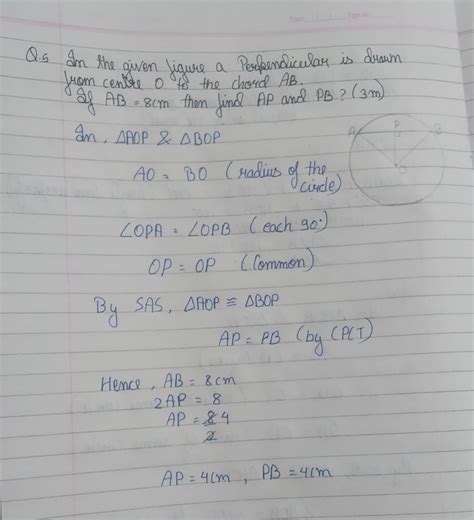 Q.5 In the given figure a Perpendicular is drawn
from centre O to the chord AB.
If AB = 8cm then find AP and PB? (3m)
In, ΔAOP & ΔBOP
A P B
O
AO = BO (radius of the
circle)
∠OPA = ∠OPB (each 90°)
OP = OP (Common)
By SAS, ΔAOP ≅ ΔBOP
AP = PB (by CPCT)
Hence, AB = 8cm
2AP = 8
AP = 8 4
2
AP = 4cm, PB = 4cm